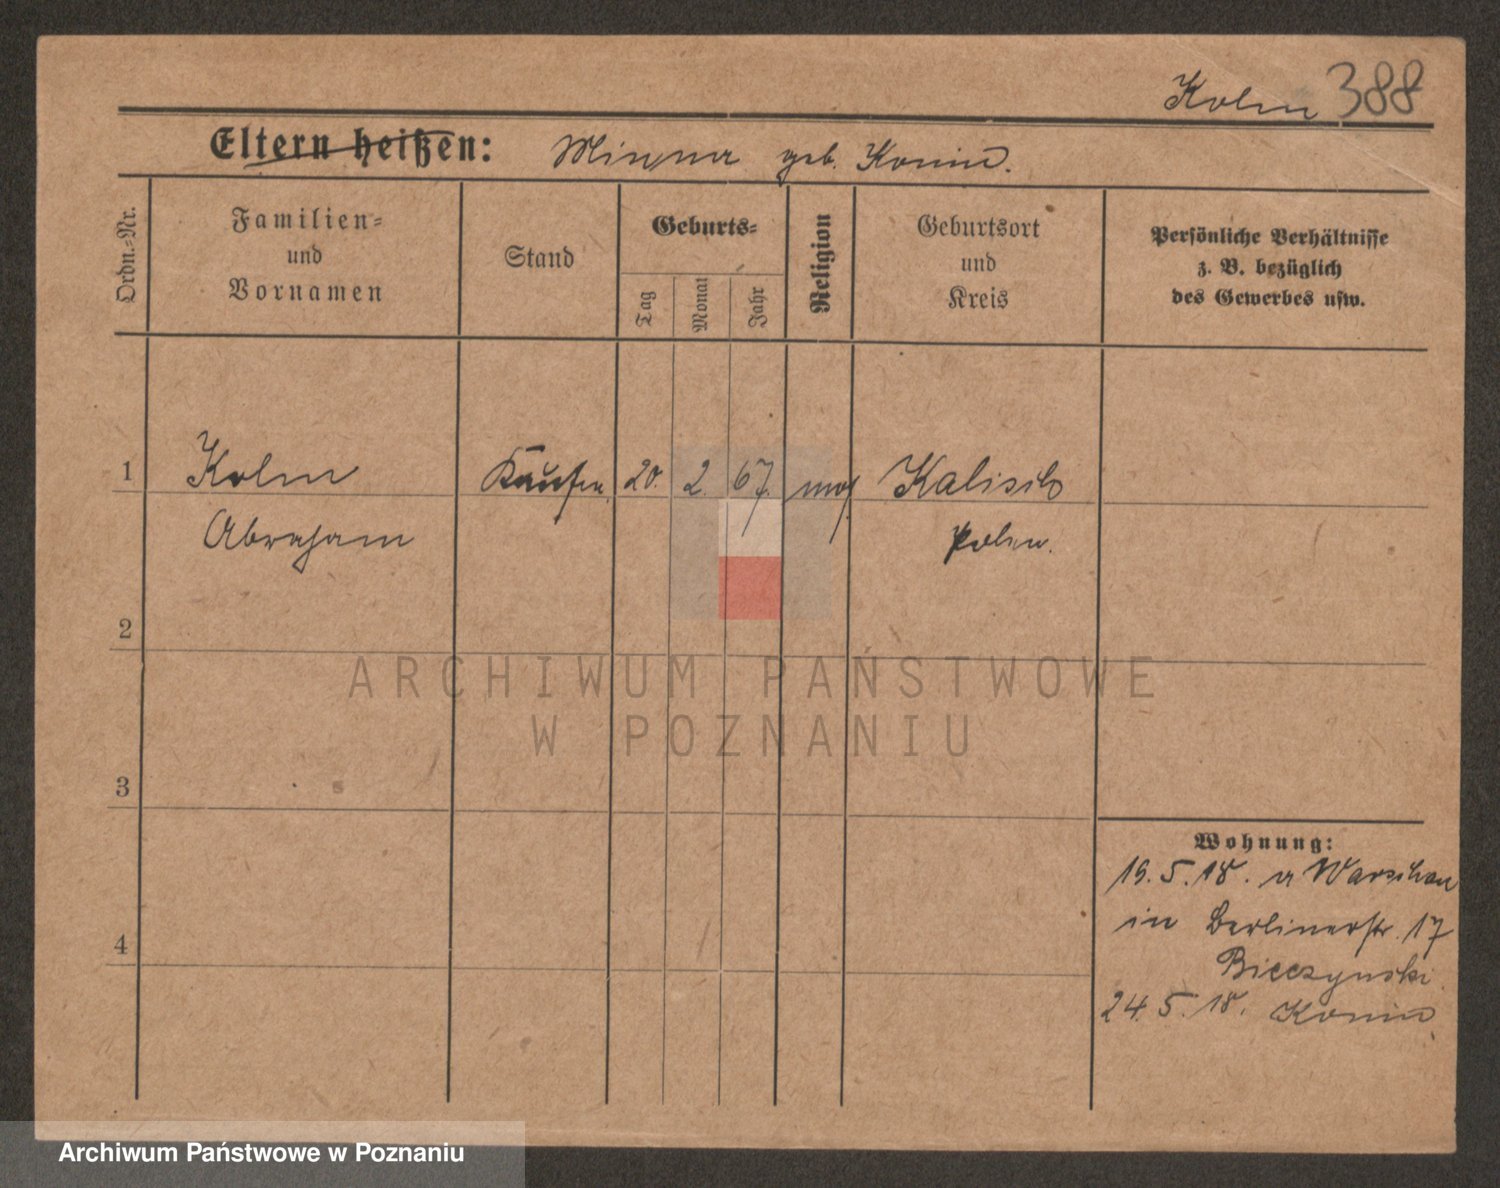 Kolm 388
Eltern heißen: Minna geb. Konin.
Ordn.-Nr.
Familien-
und
Vornamen
Stand
Geburts-
Tag
Monat
Jahr
Religion
Geburtsort
und
Kreis
Persönliche Verhältnisse
z. B. bezüglich
des Gewerbes usw.
1 Kolm Kaufm. 20. 2. 67. mos. Kalisch
Abraham Polen.
2
3
4
Wohnung:
19.5.18. a Warschau
in Berlinerstr. 17
Bieczynski
24.5.18. Konin
ARCHIWUM PAŃSTWOWE
W POZNANIU
Archiwum Państwowe w Poznaniu